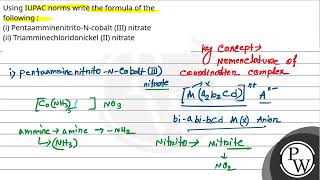 Using IUPAC norms write the formula of the
following :
(i) Pentaamminenitrito-N-cobalt (III) nitrate
(ii) Triamminechloridonickel (II) nitrate
Key Concept→
Nomenclature of
coordination complex
i) pentaamminenitrito-N-Cobalt (III)
nitrate
[M(A₂b₂Cd)]ⁿ⁺ Aⁿ⁻
[Co(NH₃)₅( ] NO₃
bi-a bi-b cd M(x) Anion
Ammine → amine → -NH₂
↳(NH₃)
Nitrito → Nitrite
↓
NO₂
PW